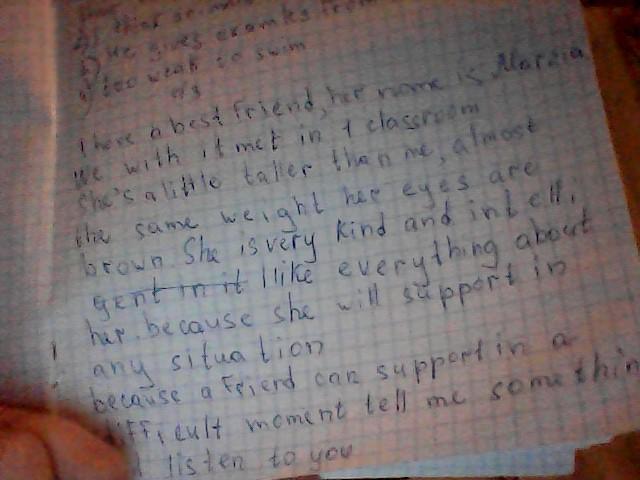 b) He gives examples from
c) too weak to swim
d3
I have a best friend, her name is Marzia
We with it met in 1 classroom
She's a little taller than me, almost
the same weight her eyes are
brown. She is very kind and intelli
gent in it I like everything about
her. because she will support in
any situation
because a friend can support in a
difficult moment tell me somethin
listen to you